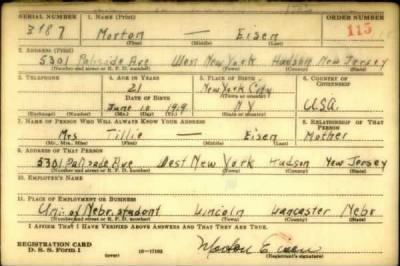 SERIAL NUMBER 1. NAME (Print) ORDER NUMBER
3187 Morton — Eisen 115
(First) (Middle) (Last)
2. ADDRESS (Print)
5301 Palisade Ave West New York Hudson New Jersey
(Number and street or R. F. D. number) (Town) (County) (State)
3. TELEPHONE 4. AGE IN YEARS 5. PLACE OF BIRTH 6. COUNTRY OF CITIZENSHIP
21 New York City
DATE OF BIRTH (Town or county)
June 10 1919 N Y U.S.A.
(Exchange) (Number) (Mo.) (Day) (Yr.) (State or country)
7. NAME OF PERSON WHO WILL ALWAYS KNOW YOUR ADDRESS 8. RELATIONSHIP OF THAT PERSON
Mrs Tillie — Eisen Mother
(Mr., Mrs., Miss) (First) (Middle) (Last)
9. ADDRESS OF THAT PERSON
5301 Palisade Ave West New York Hudson New Jersey
(Number and street or R. F. D. number) (Town) (County) (State)
10. EMPLOYER'S NAME
11. PLACE OF EMPLOYMENT OR BUSINESS
Uni. of Nebr. student Lincoln Lancaster Nebr
(Number and street or R. F. D. number) (Town) (County) (State)
I AFFIRM THAT I HAVE VERIFIED ABOVE ANSWERS AND THAT THEY ARE TRUE.
REGISTRATION CARD
D. S. S. Form 1 (over) 16—17105 Morton Eisen
(Registrant's signature)